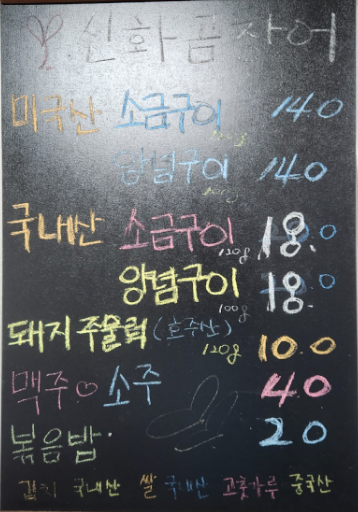 신화곰장어
미국산 소금구이 14.0
100g
양념구이 14.0
100g
국내산 소금구이 18.0
120g
양념구이 18.0
100g
돼지 주물럭 (호주산) 10.0
120g
맥주♡소주 4.0
볶음밥. 2.0
김치 국내산 쌀 국내산 고춧가루 중국산